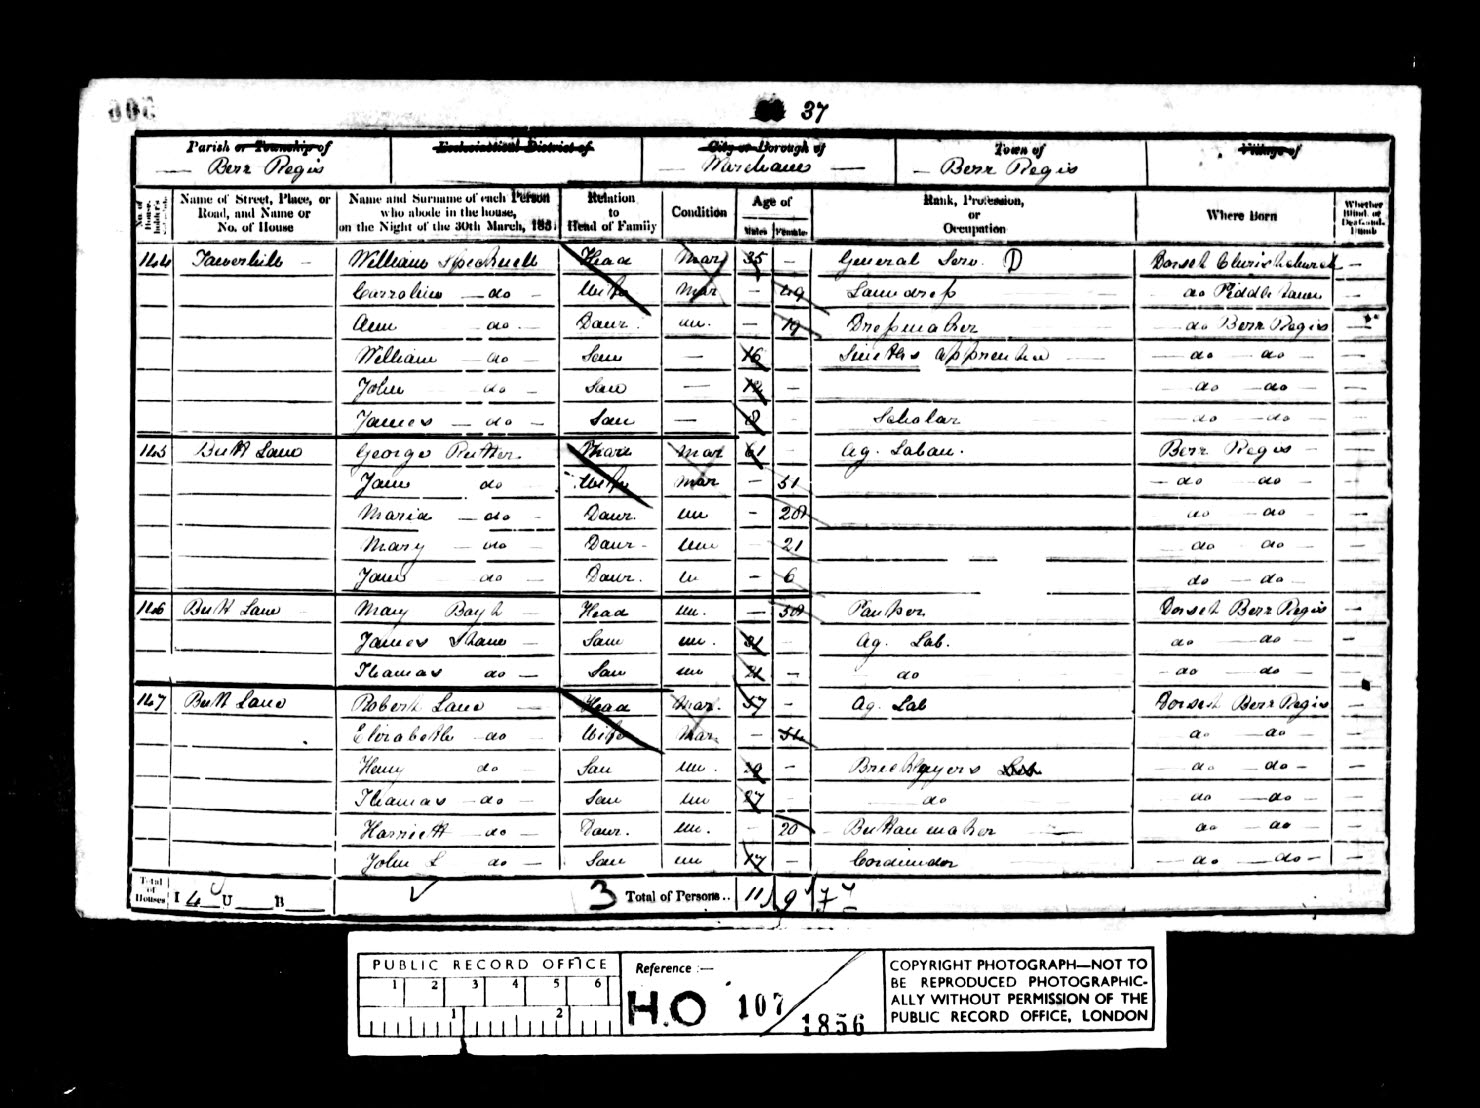 37
Parish or Township of Ecclesiastical District of City or Borough of Town of Village of
Berr Regis Wareham Berr Regis
No. of House-holder's Schedule Name of Street, Place, or Road, and Name or No. of House Name and Surname of each Person who abode in the house, on the Night of the 30th March, 1851 Relation to Head of Family Condition Age of Males Females Rank, Profession, or Occupation Where Born Whether Blind, or Deaf-and-Dumb
144 William Head Mar 35 — General Serv. D Dorset Christchurch —
Carroline — do — Wife Mar — 49 Laundress do Piddletown —
Ann — do — Daur. un. — 19 Dressmaker — do Berr Regis —
William — do — Son — 16 — Smiths apprentice — do — do —
John do — Son — 12 — — do — do —
James — do — Son — 8 — Scholar — do — do —
145 Butt Lane George Head Mar 61 Ag. Labau. Berr Regis —
Jane do — Wife Mar — 51 — do do —
Maria — do — Daur. un — 28 do — do —
Mary — do — Daur — un — 21 — do do —
Jane do — Daur. un — 6 do — do —
146 Butt Lane Mary Head un. — 58 Pauper Dorset Berr Regis —
James — Son un. 31 — Ag. Lab. do — do —
Thomas do — Son un 21 — do — do do —
147 Butt Lane Robert Lane — Head Mar. 57 — Ag. Lab Dorset Berr Regis —
Elizabeth — do — Wife Mar — 54 do — do —
Henry do — Son un. 29 — Bricklayers Lab — do do —
Thomas — do — Son un 27 — — do — do — do —
Harriett — do — Daur. un. — 20 Button maker — do — do —
John S do — Son un 17 — Cordwinder — do — do —
Total of Houses I 4 U B 3 Total of Persons.. 11 9
PUBLIC RECORD OFFICE
1 2 3 4 5 6
1 2
Reference :—
H.O 107 / 1856
COPYRIGHT PHOTOGRAPH—NOT TO
BE REPRODUCED PHOTOGRAPHIC-
ALLY WITHOUT PERMISSION OF THE
PUBLIC RECORD OFFICE, LONDON